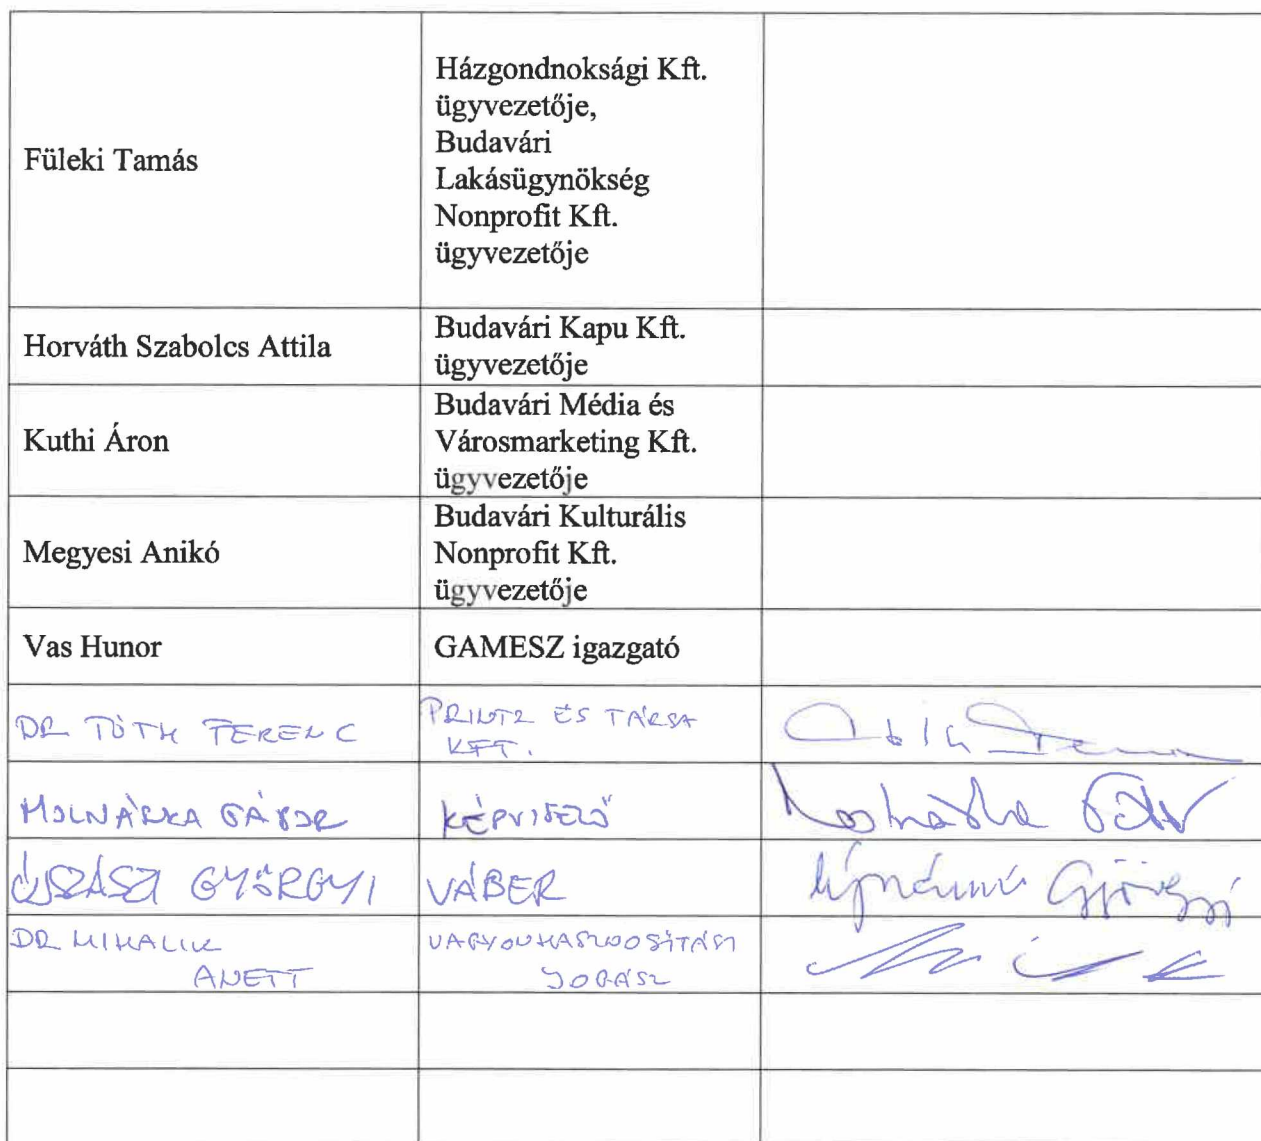 Füleki Tamás
Házgondnoksági Kft.
ügyvezetője,
Budavári
Lakásügynökség
Nonprofit Kft.
ügyvezetője
Horváth Szabolcs Attila
Budavári Kapu Kft.
ügyvezetője
Kuthi Áron
Budavári Média és
Városmarketing Kft.
ügyvezetője
Megyesi Anikó
Budavári Kulturális
Nonprofit Kft.
ügyvezetője
Vas Hunor
GAMESZ igazgató
DR TÓTH FERENC
PRINTZ ÉS TÁRSA
KFT.
MOLNÁRKA GÁBOR
KÉPVISELŐ
GYÖRGYI
VÁBER
DR MIHALIK
ANETT
VAGYONHASZNOSÍTÁSI
JOGÁSZ